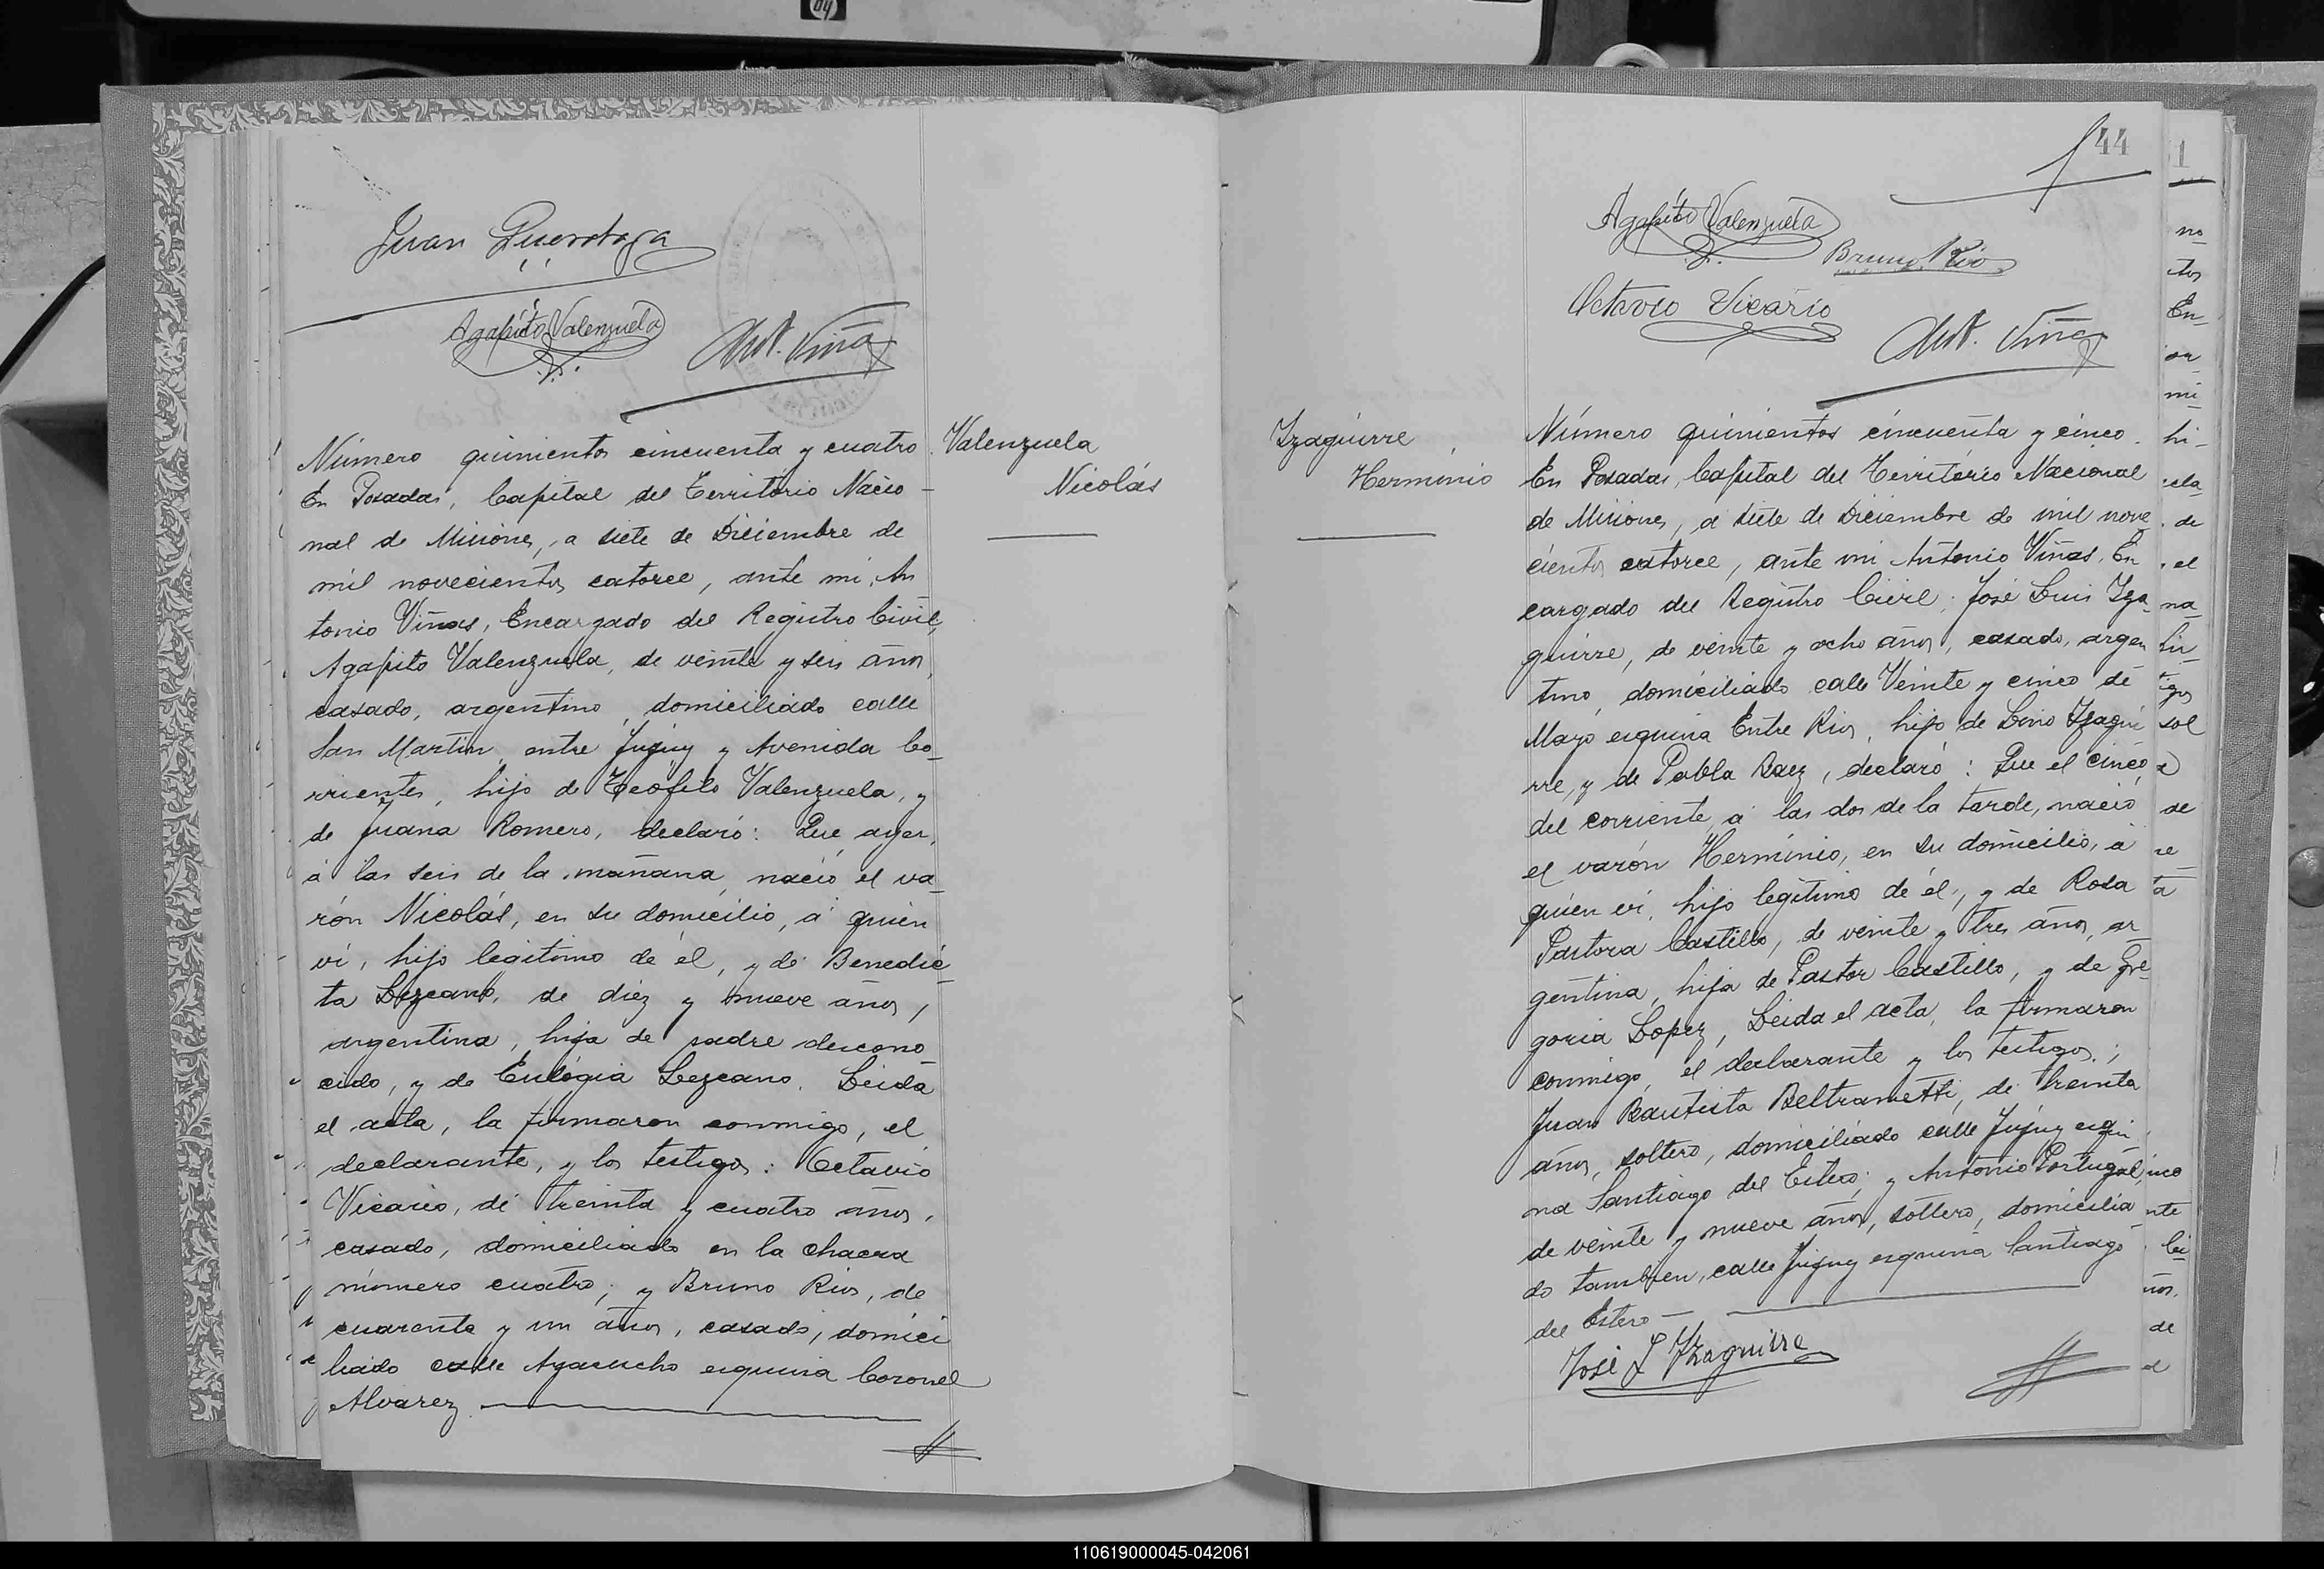 hp
Juan Querotaga
Agapito Valenzuela
Ant. Viñas
Número quinientos cincuenta y cuatro.
En Posadas, Capital del Territorio Nacio-
nal de Misiones, a siete de Diciembre de
mil novecientos catorce, ante mi, An
tonio Viñas, Encargado del Registro Civil,
Agapito Valenzuela, de veinte y seis años,
casado, argentino, domiciliado calle
San Martin entre Jujuy y Avenida Co-
rrientes, hijo de Teófilo Valenzuela, y
de Juana Romero, declaró: Que ayer,
á las seis de la mañana, nació el va-
rón Nicolás, en su domicilio, á quien
ví, hijo legítimo de él, y de Benedic-
ta Lezcano, de diez y nueve años,
argentina, hija de padre descono
cido, y de Eulógia Lezcano. Leida
el acta, la firmaron conmigo, el
declarante, y los testigos: Octavio
Vicario, de treinta y cuatro años,
casado, domiciliado en la chacra
número cuatro; y Bruno Rios, de
cuarenta y un años, casado, domici
liado calle Ayacucho esquina Coronel
Alvarez
Valenzuela
Nicolás
44
Agapito Valenzuela
Bruno Rios
Octavio Vicario
Ant. Viñas
Izaguirre
Herminio
Número quinientos cincuenta y cinco.
En Posadas, Capital del Territorio Nacional
de Misiones, a siete de Diciembre de mil nove
cientos catorce, ante mi Antonio Viñas, En
cargado del Registro Civil; José Luis Iza-
guirre, de veinte y ocho años, casado, argen
tino, domiciliado calle Veinte y cinco de
Mayo esquina Entre Rios, hijo de Lino Izagui
rre, y de Pabla Baez, declaró: Que el cinco
del corriente, á las dos de la tarde, nació
el varón Herminio, en su domicilio, á
quien ví, hijo legítimo de él, y de Rosa
Pastora Castillo, de veinte y tres años, ar
gentina, hija de Pastor Castillo, y de Gre-
goria Lopez, Leida el acta, la firmaron
conmigo, el declarante y los testigos;
Juan Bautista Beltrametti, de treinta
años, soltero, domiciliado calle Jujuy esqui
na Santiago del Estero; y Antonio Portugal,
de veinte y nueve años, soltero, domicilia
do tambien, calle Jujuy esquina Santiago
del Estero
José L Izaguirre
1
no
tos
En-
mi-
hi-
de
el
na-
sol
de
ta
nte
de
110619000045-042061